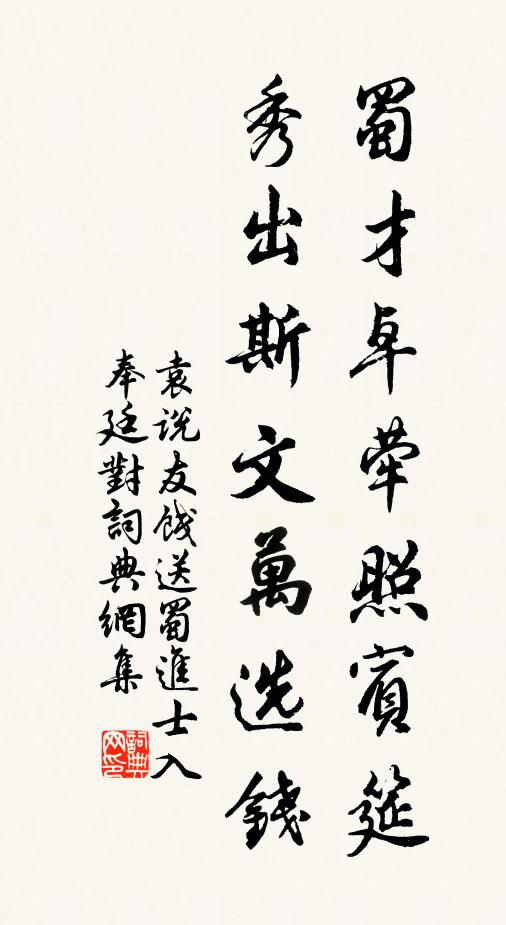 蜀才卓犖照賓筵
秀出斯文萬选錢
袁说友餞送蜀進士入
奉廷對詞典網集
詞典网印